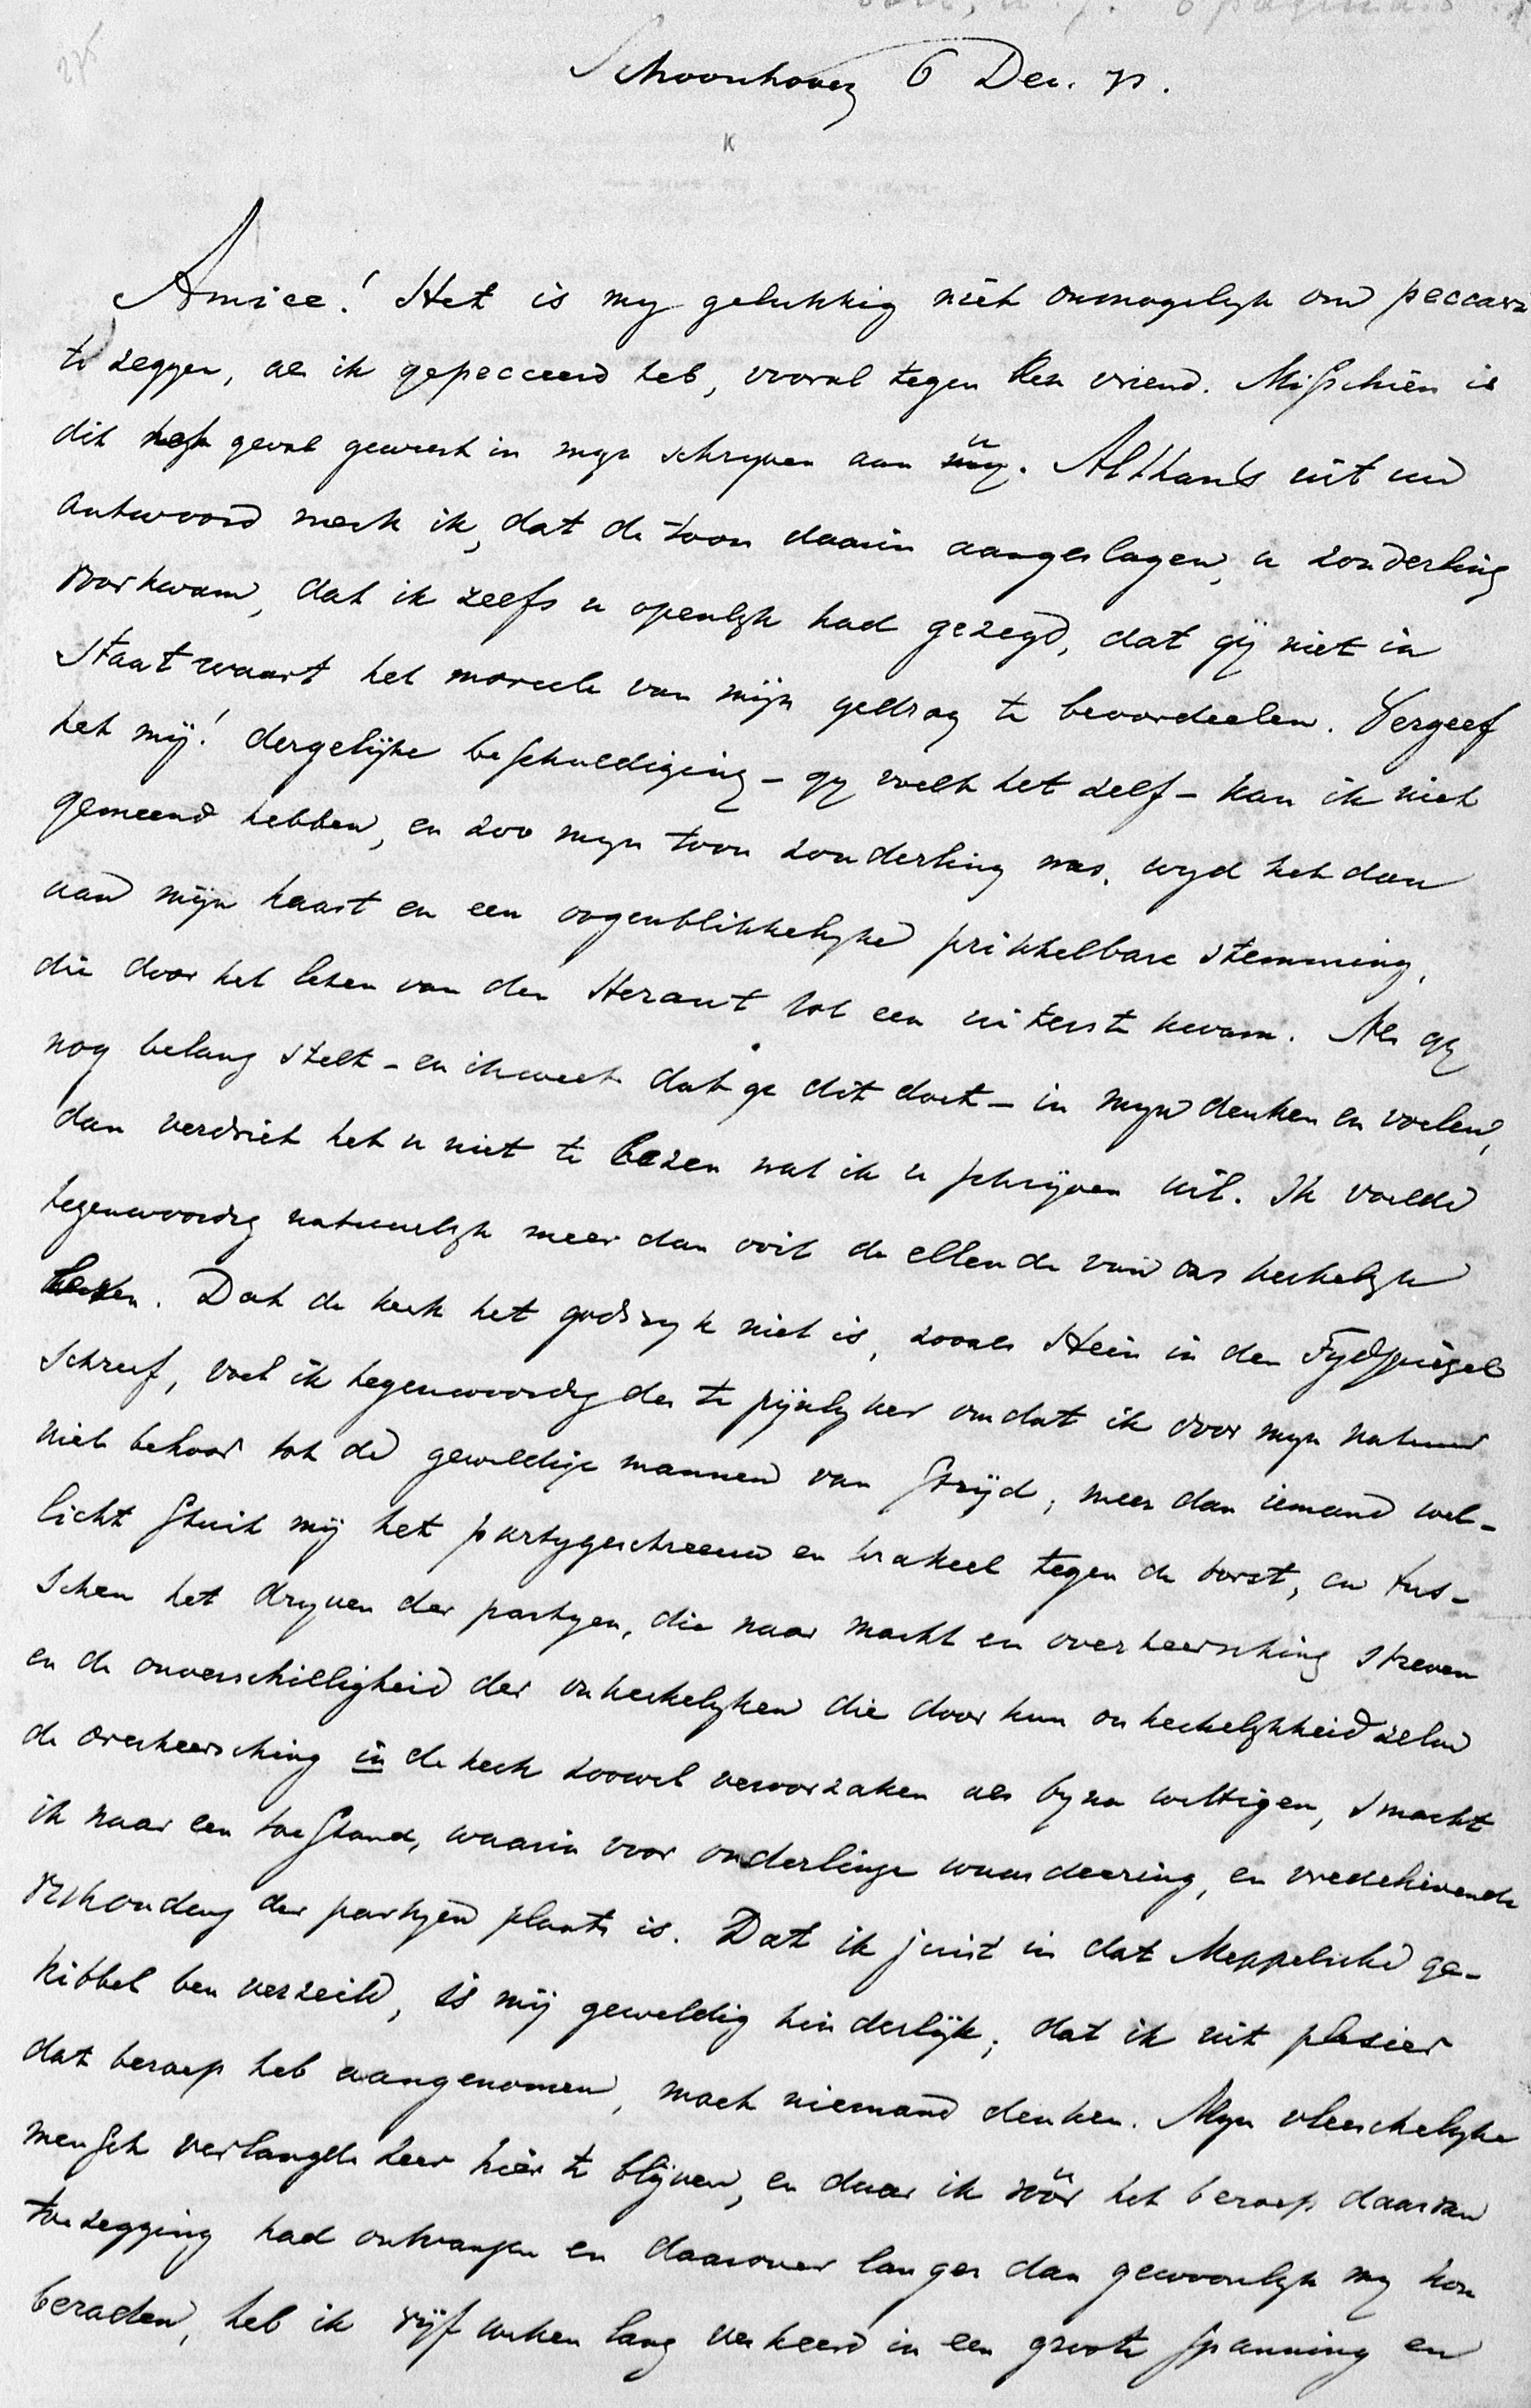 Schoonhoven 6 Dec. 71.
K
Amice! Het is my gelukkig niet onmogelyk om peccavi
te zeggen, als ik gepecceerd heb, vooral tegen een vriend. Misschien is
dit het geval geweest in mijn schryven aan u. Althans uit uw
antwoord merk ik, dat de toon daarin aangeslagen, u zonderling
voorkwam, dat ik zelfs u openlyk had gezegd, dat gij niet in
staat waart het moreele van mijn gedrag te beoordeelen. Vergeef
het mij! dergelijke beschuldiging – gy voelt het zelf – kan ik niet
gemeend hebben, en zoo myn toon zonderling was, wyt het dan
aan mijn haast en een oogenblikkelyke prikkelbare stemming,
die door het lezen van den Heraut tot een uiterste kwam. Als gy
nog belang stelt – en ik weet dat ge dit doet – in myn denken en voelen,
dan verdriet het u niet te lezen wat ik u schrijven wil. Ik voelde
tegenwoordig natuurlyk meer dan ooit de ellende van ons kerkelyk
leven. Dat de kerk het godsryk niet is, zooals Hein in den Tydspiegel
schreef, voel ik tegenwoordig des te pijnlyker omdat ik door myn natuur
niet behoor tot de geweldige mannen van strijd; meer dan iemand wel-
licht stuit mij het partygeschreeuw en krakeel tegen de borst, en tus-
schen het dryven der partyen, die naar macht en overheersching streven
en de onverschilligheid der onkerkelyken die door hun onkerkelykheid zelve
de overheersching in de kerk zoowel veroorzaken als byna wettigen, smacht
ik naar een toestand, waarin voor onderlinge waardeering, en vredelievende
verhouding der partyen plaats is. Dat ik juist in dat Meppelsche ge-
kibbel ben verzeild, is mij geweldig hinderlijk; dat ik uit plezier
dat beroep heb aangenomen, moet niemand denken. Myn vleeschelyke
mensch verlangde zeer hier te blijven, en daar ik vóór het beroep daarvan
toezegging had ontvangen en daarover langer dan gewoonlyk my kon
beraden, heb ik vijf weken lang verkeerd in een groote spanning en